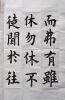 而弗有雖
休勿休不
徒聞於往